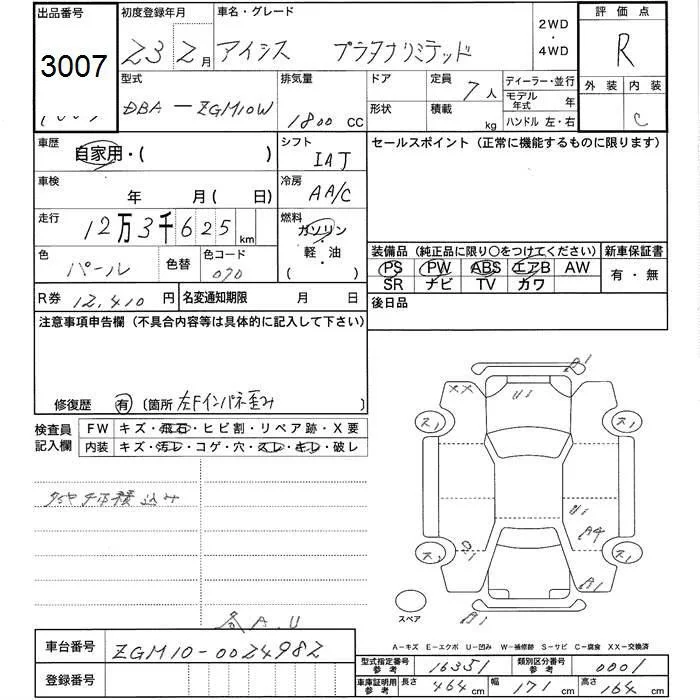 出品番号 初度登録年月 車名・グレード 2WD・4WD 評価点
3007 23 2月 アイシス プラタナリミテッド R
型式 排気量 ドア 定員 7人 ディーラー・並行 外装 内装
DBA-ZGM10W 1800 CC 形状 積載 kg モデル年式 年 ハンドル 左・右 C
車歴 自家用・( ) シフト IAT セールスポイント (正常に機能するものに限ります)
車検 年 月 ( 日) 冷房 AA/C
走行 12万3千625km 燃料 ガソリン・軽・油 ( )
装備品 (純正品に限り○をつけてください) 新車保証書
色 パール 色替 色コード 070 PS PW ABS エアB AW 有・無
SR ナビ TV カワ
R券 12,410円 名変通知期限 月 日 後日品
注意事項申告欄 (不具合内容等は具体的に記入して下さい)
修復歴 有 (箇所 左Fインパネ歪み
検査員記入欄 FW キズ・飛石・ヒビ割・リペア跡・X要
内装 キズ・汚レ・コゲ・穴・スレ・キレ・破レ
積込み
A1
XX U1
ス1 ス1
U1
A4
ス1 ス1
A1
スペア
A1
A.U
A-キズ E-エクボ U-凹み W-補修跡 S-サビ C-腐食 XX-交換済
車台番号 ZGM10-0024982
型式指定番号 参考 16351 類別区分番号 参考 0001
登録番号 車庫証明用 参考 長さ 464cm 幅 171cm 高さ 164cm